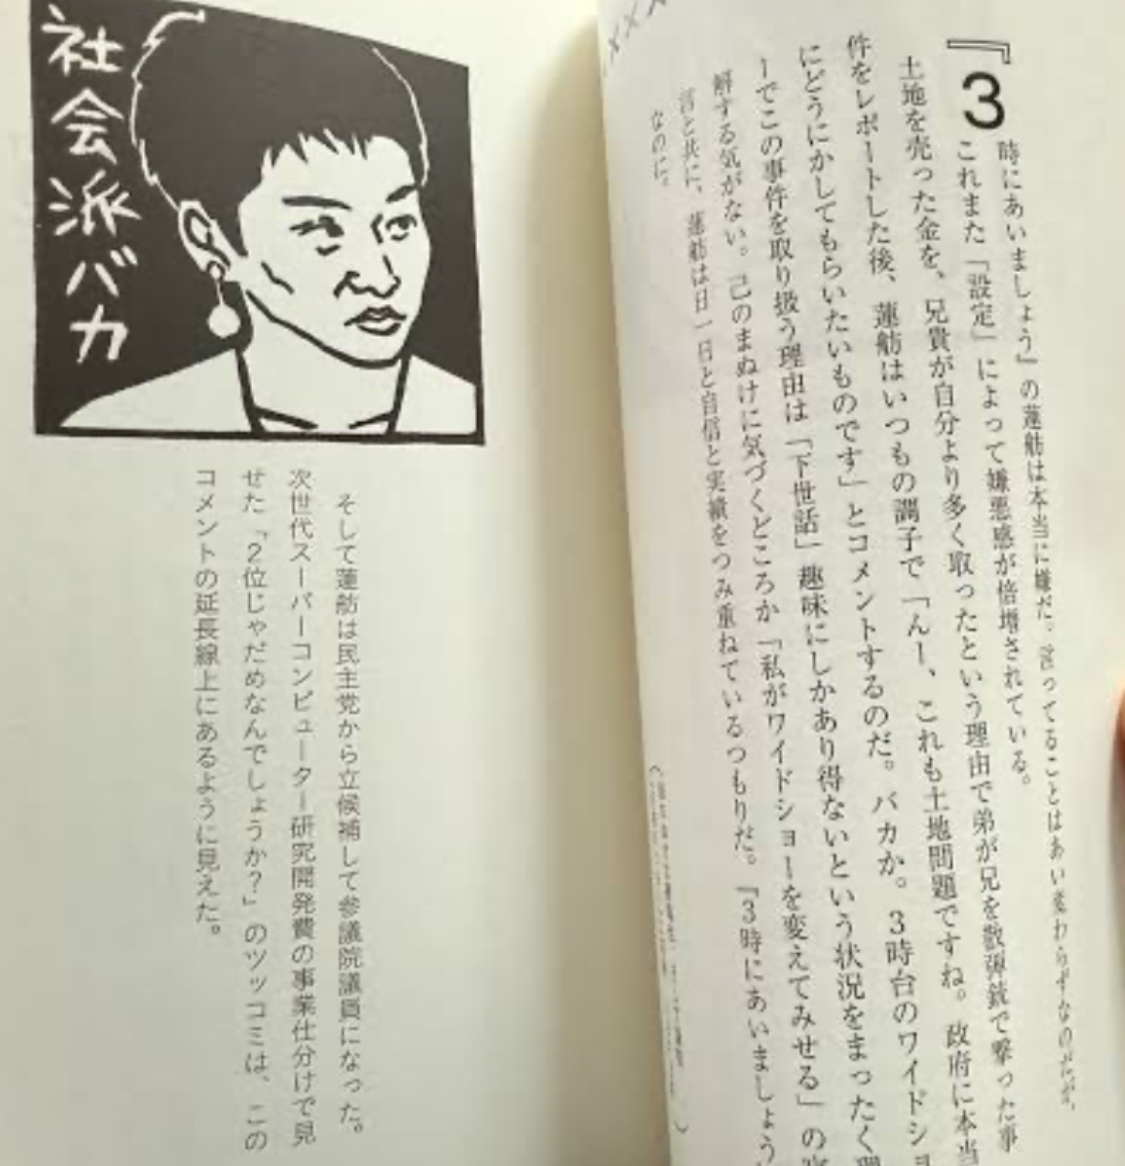 『3時にあいましょう』の蓮舫は本当に嫌だ。言ってることはあい変わらずなのだが、
これまた「設定」によって嫌悪感が倍増されている。
土地を売った金を、兄貴が自分より多く取ったという理由で弟が兄を散弾銃で撃った事
件をレポートした後、蓮舫はいつもの調子で「んー、これも土地問題ですね。政府に本当
にどうにかしてもらいたいものです」とコメントするのだ。バカか。3時台のワイドショ
ーでこの事件を取り扱う理由は「下世話」趣味にしかあり得ないという状況をまったく理
解する気がない。己のまぬけに気づくどころか「私がワイドショーを変えてみせる」の
言と共に、蓮舫は日一日と自信と実績をつみ重ねているつもりだ。『3時にあいましょう
なのに。
社会派バカ
そして蓮舫は民主党から立候補して参議院議員になった。
次世代スーパーコンピューター研究開発費の事業仕分けで見
せた「2位じゃだめなんでしょうか?」のツッコミは、この
コメントの延長線上にあるように見えた。